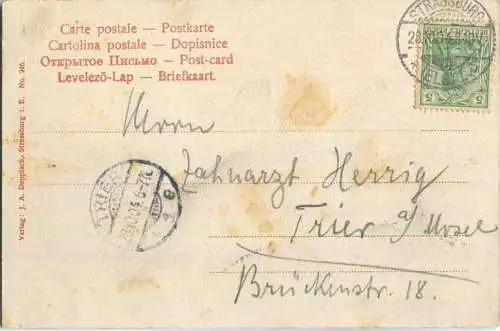 Carte postale — Postkarte
Cartolina postale — Dopisnice
Открытое Письмо — Post-card
Levelező-Lap — Briefkaart.
Verlag: J. A. Depplsch, Strassburg i. E. No. 96.
STRASSBURG
5 5
Herrn
Zahnarzt Herrig
Trier a/Mosel
Brückenstr. 18.
TRIER